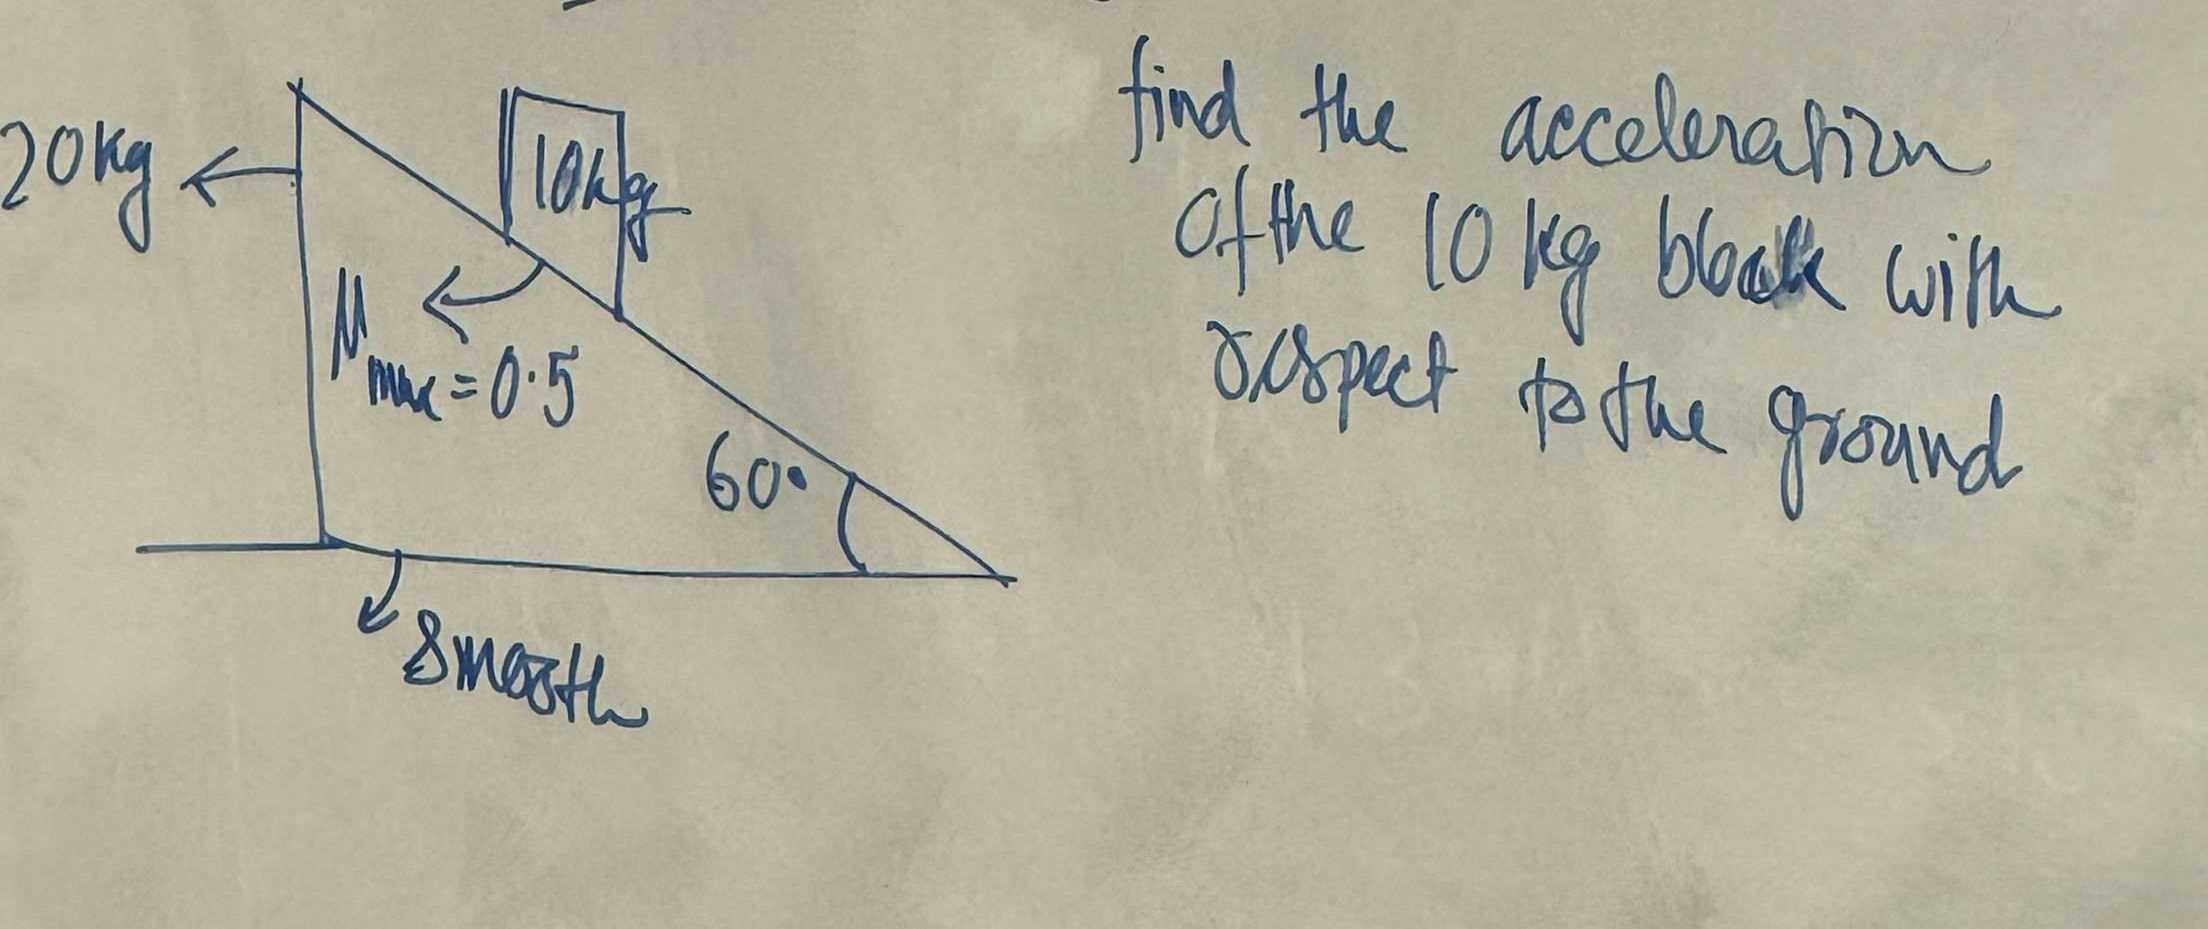 20kg
10kg
μmax = 0.5
60°
smooth
find the acceleration
of the 10 kg block with
respect to the ground